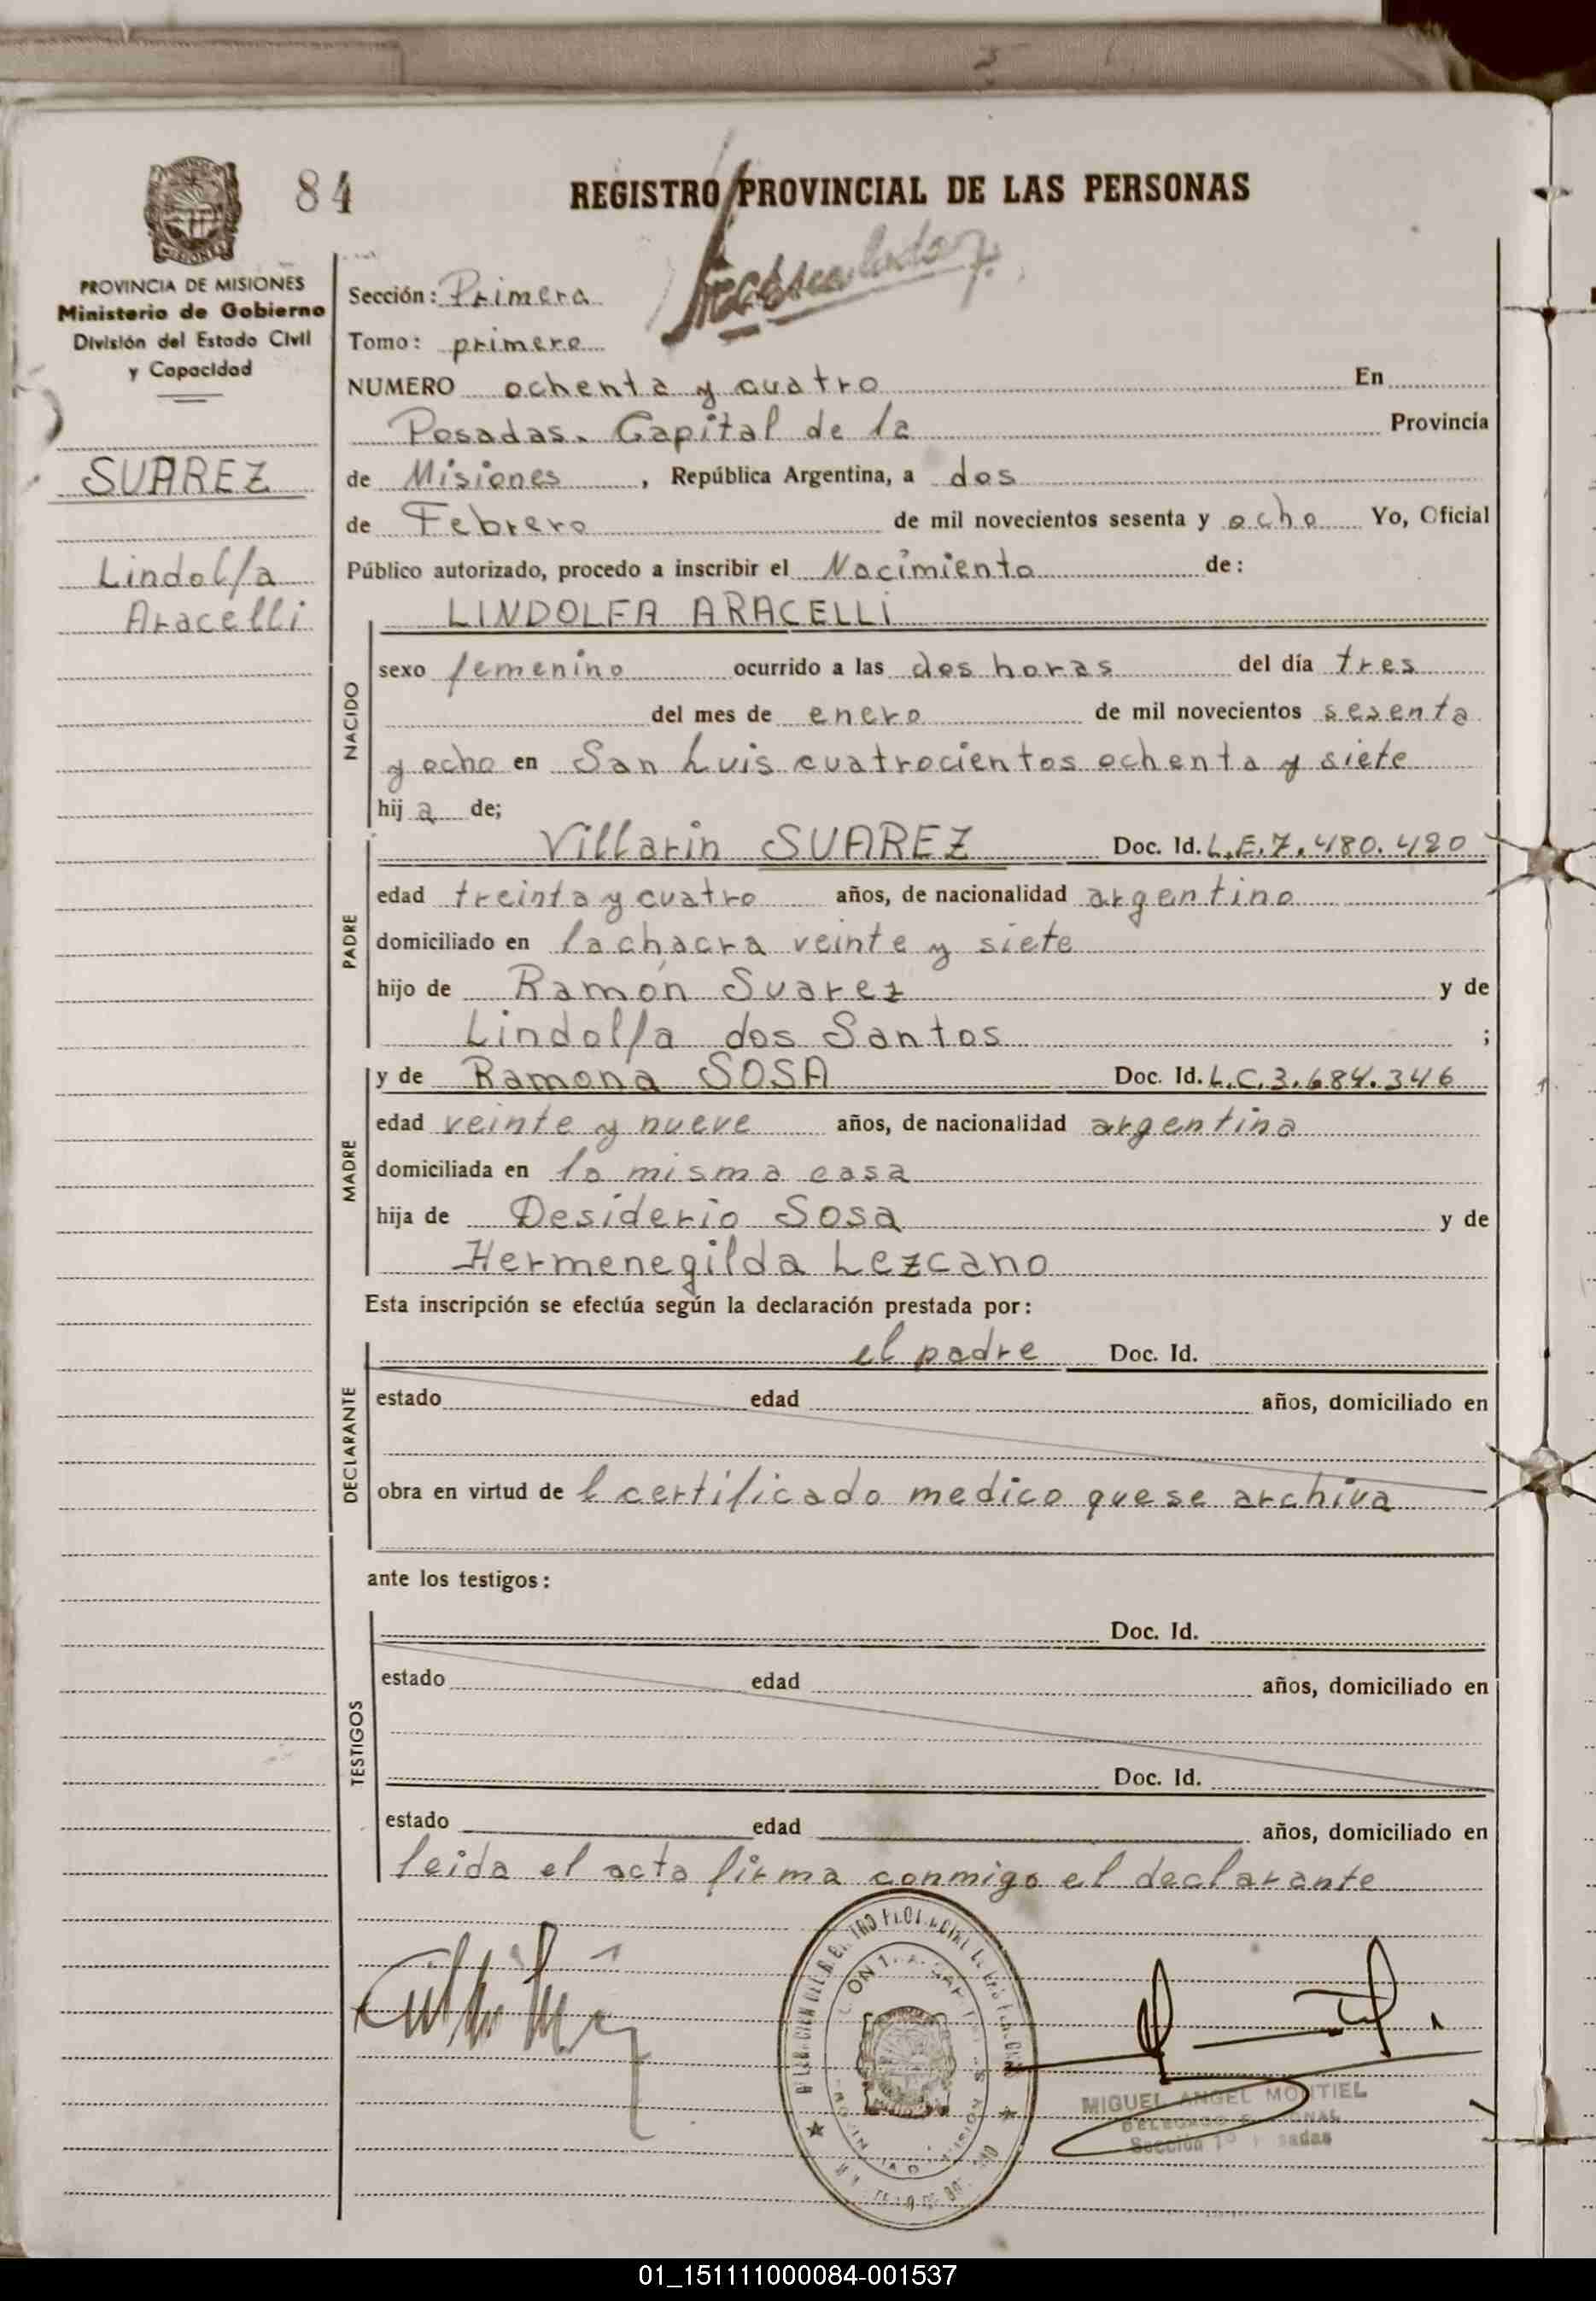 84
REGISTRO PROVINCIAL DE LAS PERSONAS
PROVINCIA DE MISIONES
Ministerio de Gobierno
División del Estado Civil
y Capacidad
SUAREZ
Lindolfa
Aracelli
Sección: Primera
Tomo: primero
NUMERO ochenta y cuatro En
Posadas. Capital de la Provincia
de Misiones, República Argentina, a dos
de Febrero de mil novecientos sesenta y ocho Yo, Oficial
Público autorizado, procedo a inscribir el Nacimiento de:
LINDOLFA ARACELLI
NACIDO
sexo femenino ocurrido a las dos horas del día tres
del mes de enero de mil novecientos sesenta
y ocho en San Luis cuatrocientos ochenta y siete
hij a de;
PADRE
Villarin SUAREZ Doc. Id. L.E.7.480.420
edad treinta y cuatro años, de nacionalidad argentino
domiciliado en la chacra veinte y siete
hijo de Ramón Suarez y de
Lindolfa dos Santos ;
MADRE
y de Ramona SOSA Doc. Id. L.C.3.684.346
edad veinte y nueve años, de nacionalidad argentina
domiciliada en la misma casa
hija de Desiderio Sosa y de
Hermenegilda Lezcano
Esta inscripción se efectúa según la declaración prestada por:
DECLARANTE
el padre Doc. Id.
estado edad años, domiciliado en
obra en virtud de l certificado medico que se archiva
ante los testigos:
TESTIGOS
Doc. Id.
estado edad años, domiciliado en
Doc. Id.
estado edad años, domiciliado en
leida el acta firma conmigo el declarante
MIGUEL ANGEL MONTIEL
DELEGADO
Sección 1º
01_151111000084-001537